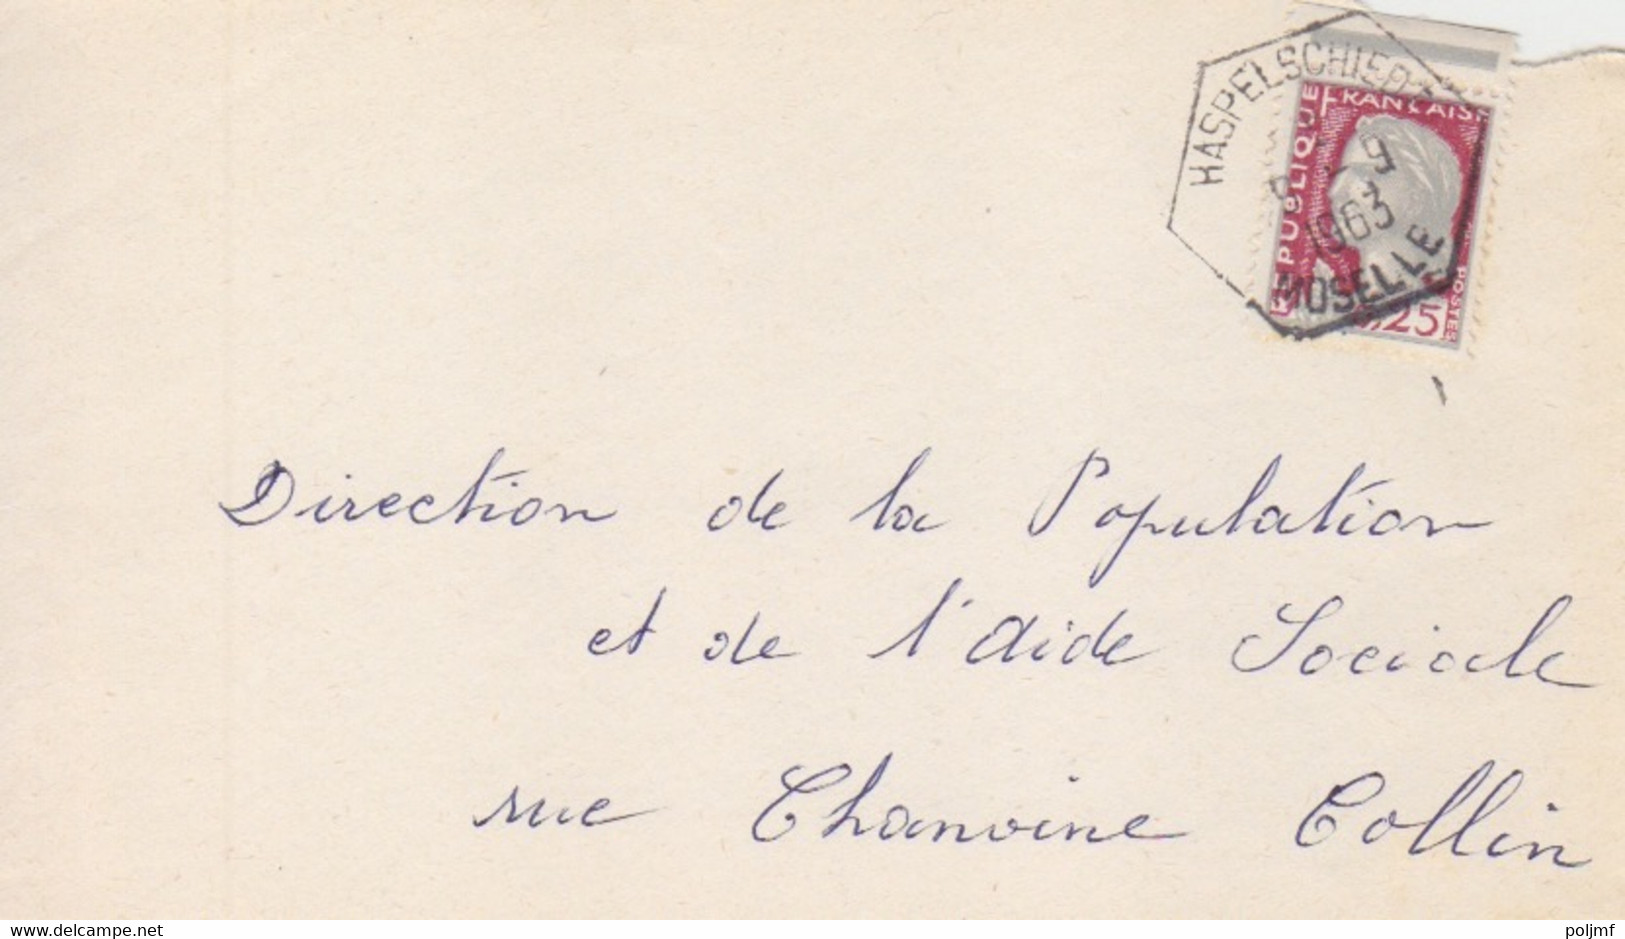 HASPELSCHIEDT
RÉPUBLIQUE FRANÇAISE
8 - 9
1963
MOSELLE
POSTES
0,25
Direction de la Population
et de l'Aide Sociale
rue Chanoine Collin
www.delcampe.net
poljmf